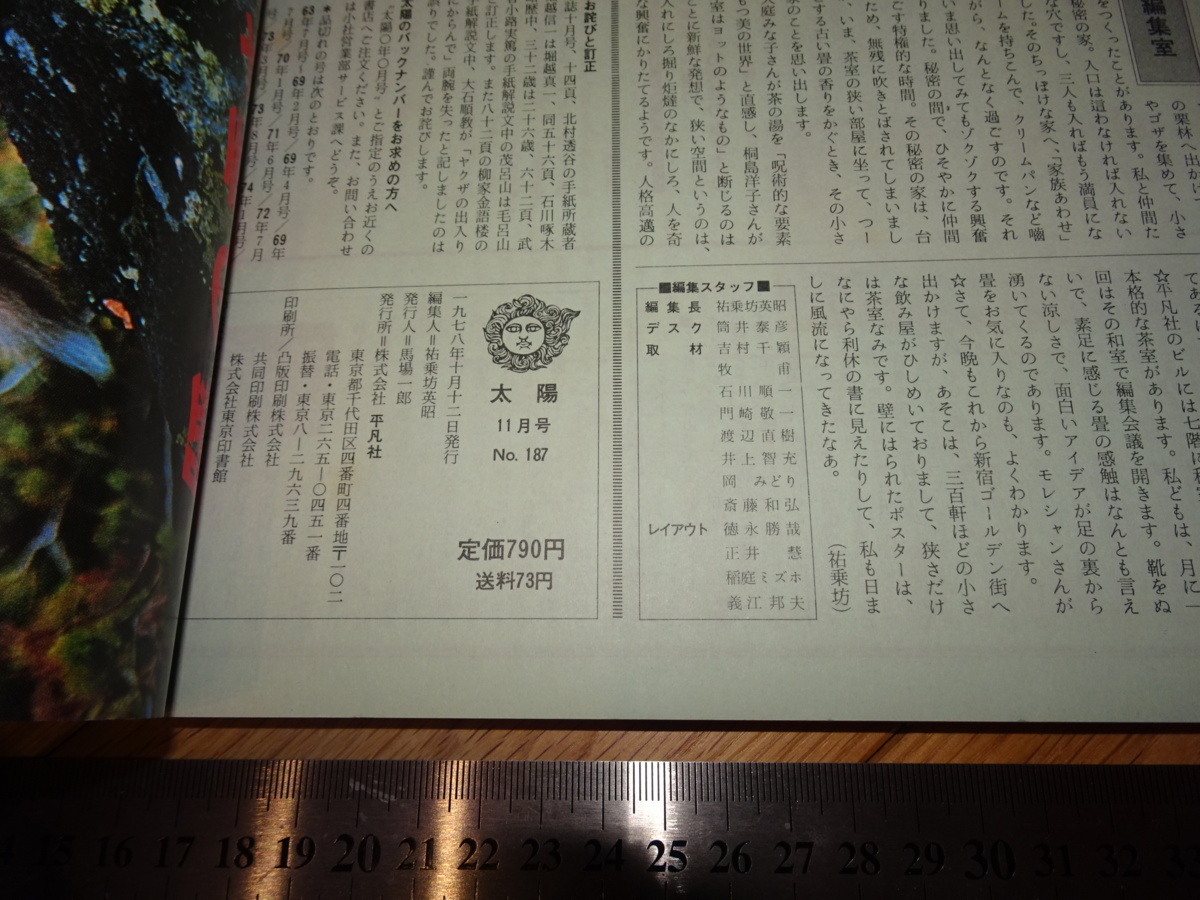 編集室
の栗林へ出かけ、小さ
やゴザを集めて、小さ
をつくったことがあります。私と仲間た
秘密の家。入口は這わなければ入れない
な穴ですし、三人も入ればもう満員にな
したそのちっぽけな家へ、「家族あわせ」
ームを持ちこんで、クリームパンなど噛
がら、なんとなく過ごすのです。それ
いま思い出してみてもゾクゾクする興奮
りました。秘密の間で、ひそやかに仲間
ごす特権的な時間。その秘密の家は、台
ため、無残に吹きとばされてしまいまし
、いま、茶室の狭い部屋に坐って、つー
する古い畳の香りをかぐとき、その小さ
家のことを思い出します。
庭みな子さんが茶の湯を「呪術的な要素
もつ美の世界」と直感し、桐島洋子さんが
室はヨットのようなもの」と断じるのは
ことに新鮮な発想で、狭い空間というのは、
入れにしろ掘り炬燵のなかにしろ、人を奇
な興奮にかりたてるようです。人格高邁の
てある
☆平凡社のビルには七階に私
本格的な茶室があります。私どもは、月に一
回はその和室で編集会議を開きます。靴をぬ
いで、素足に感じる畳の感触はなんとも言え
ない涼しさで、面白いアイデアが足の裏から
湧いてくるのであります。モレシャンさんが
畳をお気に入りなのも、よくわかります。
☆さて、今晩もこれから新宿ゴールデン街へ
出かけますが、あそこは、三百軒ほどの小さ
な飲み屋がひしめいておりまして、狭さだけ
は茶室なみです。壁にはられたポスターは、
なにやら利休の書に見えたりして、私も日ま
しに風流になってきたなあ。
（祐乗坊）
■編集スタッフ■
編集長 祐乗坊英昭
デスク 筒井泰彦
取材 吉村千穎
牧 甫
石川順一
門崎敬一
渡辺直樹
井上智充
岡みどり
斎藤和弘
レイアウト 徳永勝哉
正井 慧
稲庭ミズホ
義江邦夫
お詫びと訂正
誌十月号、十四頁、北村透谷の手紙所蔵者
越信一は堀越真一、同五十六頁、石川啄木
歴中、三十二歳は二十六歳、六十二頁、武
小路実篤の手紙解説文中の茂呂山は毛呂山
と訂正します。また八十二頁の柳家金語楼の
紙解説文中、大石順教が「ヤクザの出入り
にからんで」両腕を失ったと記しましたのは
誤りでした。謹んでお詫びします。
太陽のバックナンバーをお求めの方へ
"太陽〇年〇月号"とご指定のうえお近くの
書店へご注文ください。また、お問い合わせ
は小社営業部サービス課へどうぞ。
＊品切れの号は次のとおりです。
63年7月号／69年2月号／69年4月号／69年
7月号／70年1月号／71年6月号／72年7月
号／73年3月号／73年8月号／74年1月号／
太陽
11月号
No. 187
一九七八年十月十二日発行
編集人＝祐乗坊英昭
発行人＝馬場一郎
発行所＝株式会社 平凡社
東京都千代田区四番町四番地〒一〇二
電話・東京二六五―〇四五一番
振替・東京八―二九六三九番
印刷所／凸版印刷株式会社
共同印刷株式会社
株式会社東京印書館
定価790円
送料73円
15 16 17 18 19 20 21 22 23 24 25 26 27 28 29 30 31 32 33